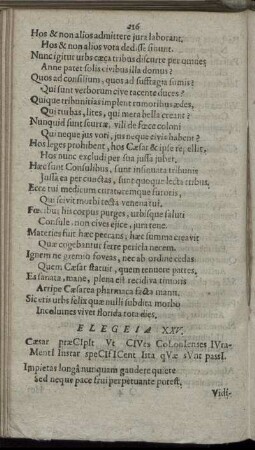 216
Hos & non alios admittere jura laborant,
Hos & non alios vota dedisse sinunt.
Nunc igitur urbs cæca tribus discurre per omnes
Anne patet solis civibus illa domus?
Quos ad consilium, quos ad suffragia sumis?
Qui sunt verborum cive tacente duces?
Quique tribunitias implent rumoribus ædes,
Qui turbas, lites, qui mera bella creant?
Nunquid sunt scurræ, vili de fæce coloni
Qui neque jus voti, jus neque civis habent?
Hos leges prohibent, hos Cæsar & ipse repellit,
Hos nunc excludi per sua jussa jubet,
Hæc sunt Consulibus, sunt insinuata tribunis
Jussa ea per cunctas, sunt quoque lecta tribus.
Ecce tui medicum curatoremque furoris,
Qui scivit morbi tecta venena tui.
Fœcibus his corpus purges, urbisque saluti
Consule, non cives ejice, jura tene.
Materies fuit hæc peccans, hæc summa creavit
Quæ cogebantur ferre pericla necem.
Ignem ne gremio foveas, nec ab ordine cedas
Quem Cæsar statuit, quem tenuere patres.
Ea sanata, mane, plena est recidiva timoris
Arripe Cæsarea pharmaca facta manu.
Sic eris urbs felix quæ nulli subdita morbo
Incolumes vives florida tota dies.
ELEGEIA XXV.
Cæsar præCIpIt Vt CIVes CoLonIenses IVra-
MentI Instar speCIfICent Ista qVæ sVnt passI.
Impietas longâ nunquam gaudere quiete
Sed neque pace frui perpetuante potest,
Vidi-